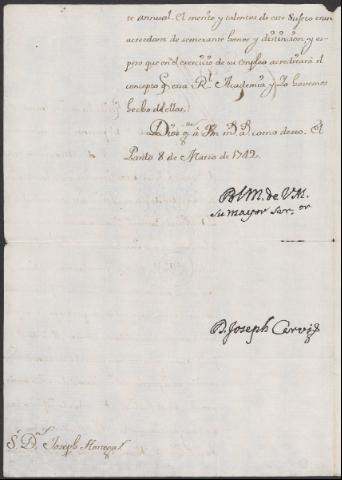 te annual. El merito y talentos de este Sugeto eran
acredores de semexante honor y distincion, y es-
pero que en el exercicio de su empleo acreditará el
concepto q esa Rl Academia y Yo havemos
hecho de ellos.
Dios gue a Vm ms as como deseo. El
Pardo 8 de Marzo de 1742.
BlM. de VM.
su mayor Ser.or
D. Joseph Carvj
Sr Dn Joseph